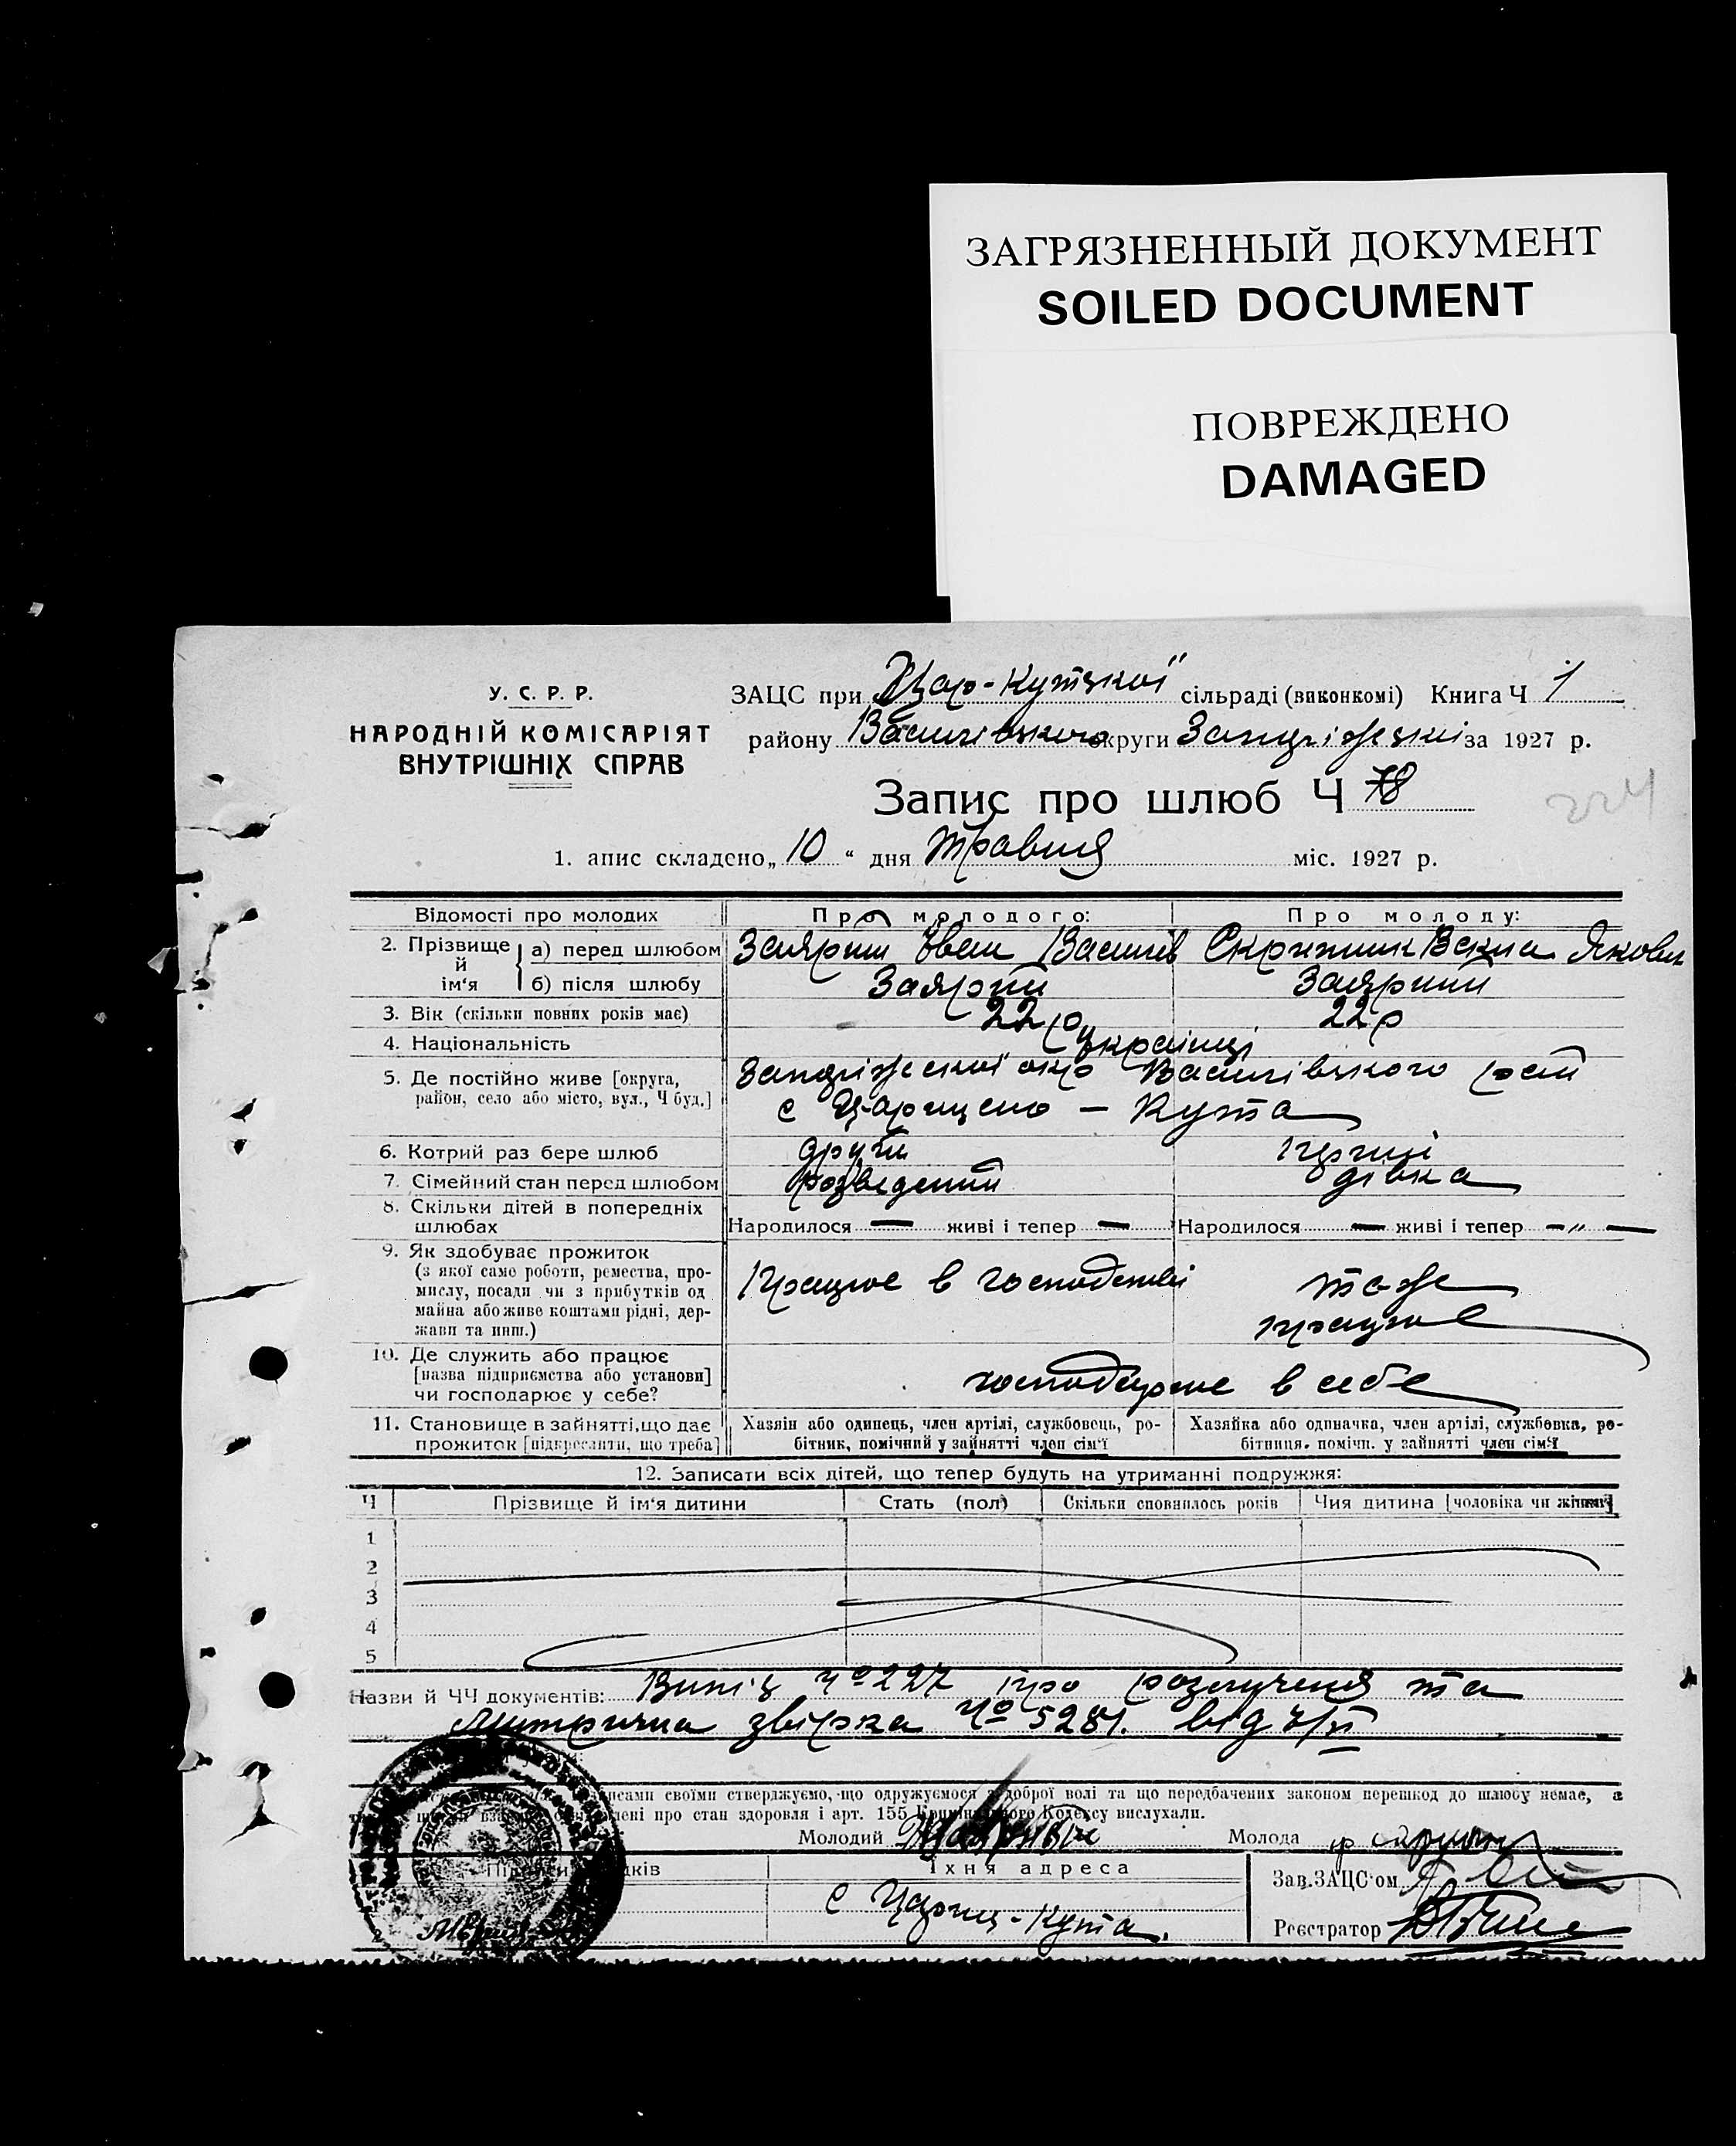 ЗАГРЯЗНЕННЫЙ ДОКУМЕНТ
SOILED DOCUMENT
ПОВРЕЖДЕНО
DAMAGED
У. С. Р. Р.
НАРОДНІЙ КОМІСАРІЯТ
ВНУТРІШНІХ СПРАВ
ЗАЦС при Цар-Кутської сільраді (виконкомі) Книга Ч 1
району Василівського округи Запоріжської за 1927 р.
Запис про шлюб Ч 78
224
1. апис складено „ 10 “ дня Травня міс. 1927 р.
Відомості про молодих Про молодого: Про молоду:
2. Прізвище й ім‘я а) перед шлюбом Заярний Іван Василів Скрипник Векла Яковл
б) після шлюбу Заярний Заярний
3. Вік (скільки повних років має) 22 р. 22 р
4. Національність Українці
5. Де постійно живе [округа, район, село або місто, вул., Ч буд.] Запоріжської окр Василівського рай
с Царицено – Кута
6. Котрий раз бере шлюб другий перший
7. Сімейний стан перед шлюбом розведений дівка
8. Скільки дітей в попередніх шлюбах Народилося — живі і тепер — Народилося — живі і тепер – „ —
9. Як здобуває прожиток
(з якої саме роботи, ремества, про-
мислу, посади чи з прибутків од
майна або живе коштами рідні, дер-
жави та инш.)
Працює в господстві
та же
працює
10. Де служить або працює
[назва підприємства або установи]
чи господарює у себе?
господарює в себе
11. Становище в зайнятті, що дає
прожиток [підкреслити, що треба]
Хазяін або одинець, член артілі, службовець, ро-
бітник, помічний у зайнятті член сім‘ї
Хазяйка або одиначка, член артілі, службовка, ро-
бітниця, помічн. у зайнятті член сім‘ї
12. Записати всіх дітей, що тепер будуть на утриманні подружжя:
Ч Прізвище й ім‘я дитини Стать (пол) Скільки сповнилось років Чия дитина [чоловіка чи жінки]
1
2
3
4
5
Назви й ЧЧ документів: Випіз № 227 про розлучення та
Митрична звірка № 5281. від
исами своїми стверджуємо, що одружуємося з доброї волі та що передбачених законом перешкод до шлюбу немає, а
лені про стан здоровля і арт. 155 Кримінального Кодексу вислухали.
Молодий Молода
Підписи дків Їхня адреса
с Цариц-Кута.
Зав. ЗАЦС‘ом
Реєстратор